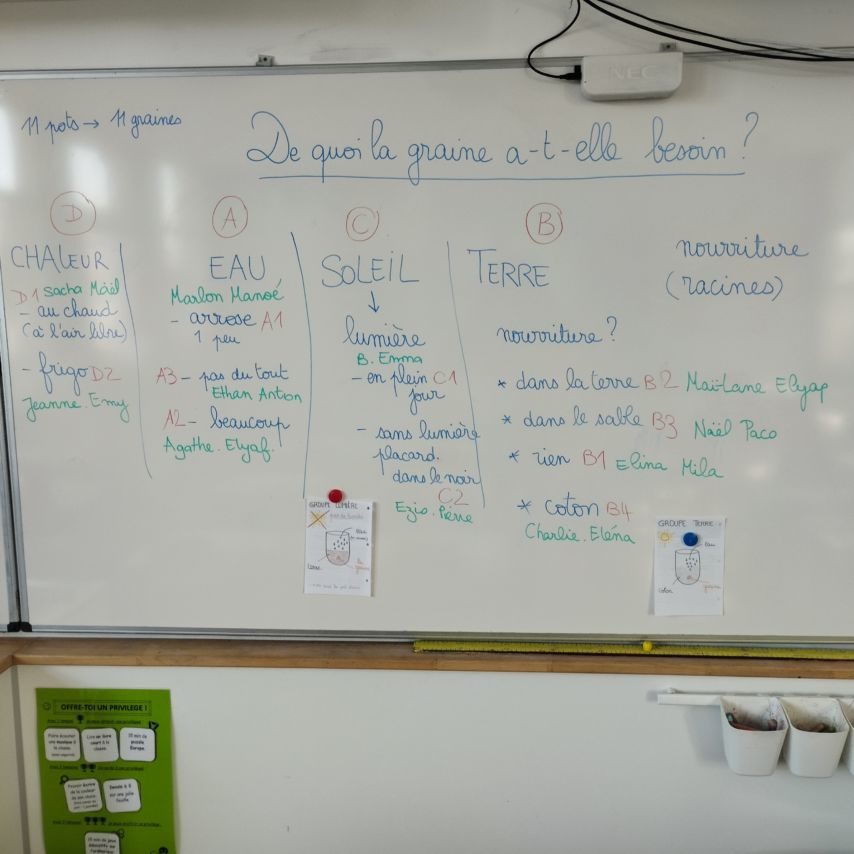 NEC
11 pots → 11 graines
De quoi la graine a-t-elle besoin ?
D
CHALEUR
D1 Sacha Maël
- au chaud
(à l'air libre)
- frigo D2
Jeanne. Emy
A
EAU
Marlon Manoé
- arrose A1
1 peu
A3 - pas du tout
Ethan Anton
A2 - beaucoup
Agathe. Elyaf.
C
SOLEIL
↓
lumière
B. Emma
- en plein C1
jour
- sans lumière
placard.
dans le noir
C2
Ezio. Pierre
B
TERRE
nourriture ?
* dans la terre B2 Maï-Lane Elyap
* dans le sable B3 Naël Paco
* rien B1 Elina Mila
* coton B4
Charlie. Eléna
nourriture
(racines)
GROUPE LUMIÈRE
GROUPE TERRE
eau
coton
OFFRE-TOI UN PRIVILEGE !